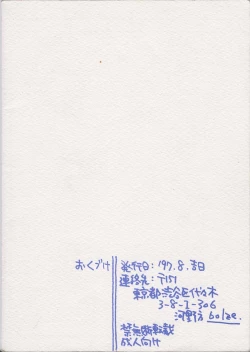 おくづけ
発行日：197.8.吉日
連絡先：〒151
東京都渋谷区代々木
3-8-1-306
河野方 bolze.
禁無断転載
成人向け